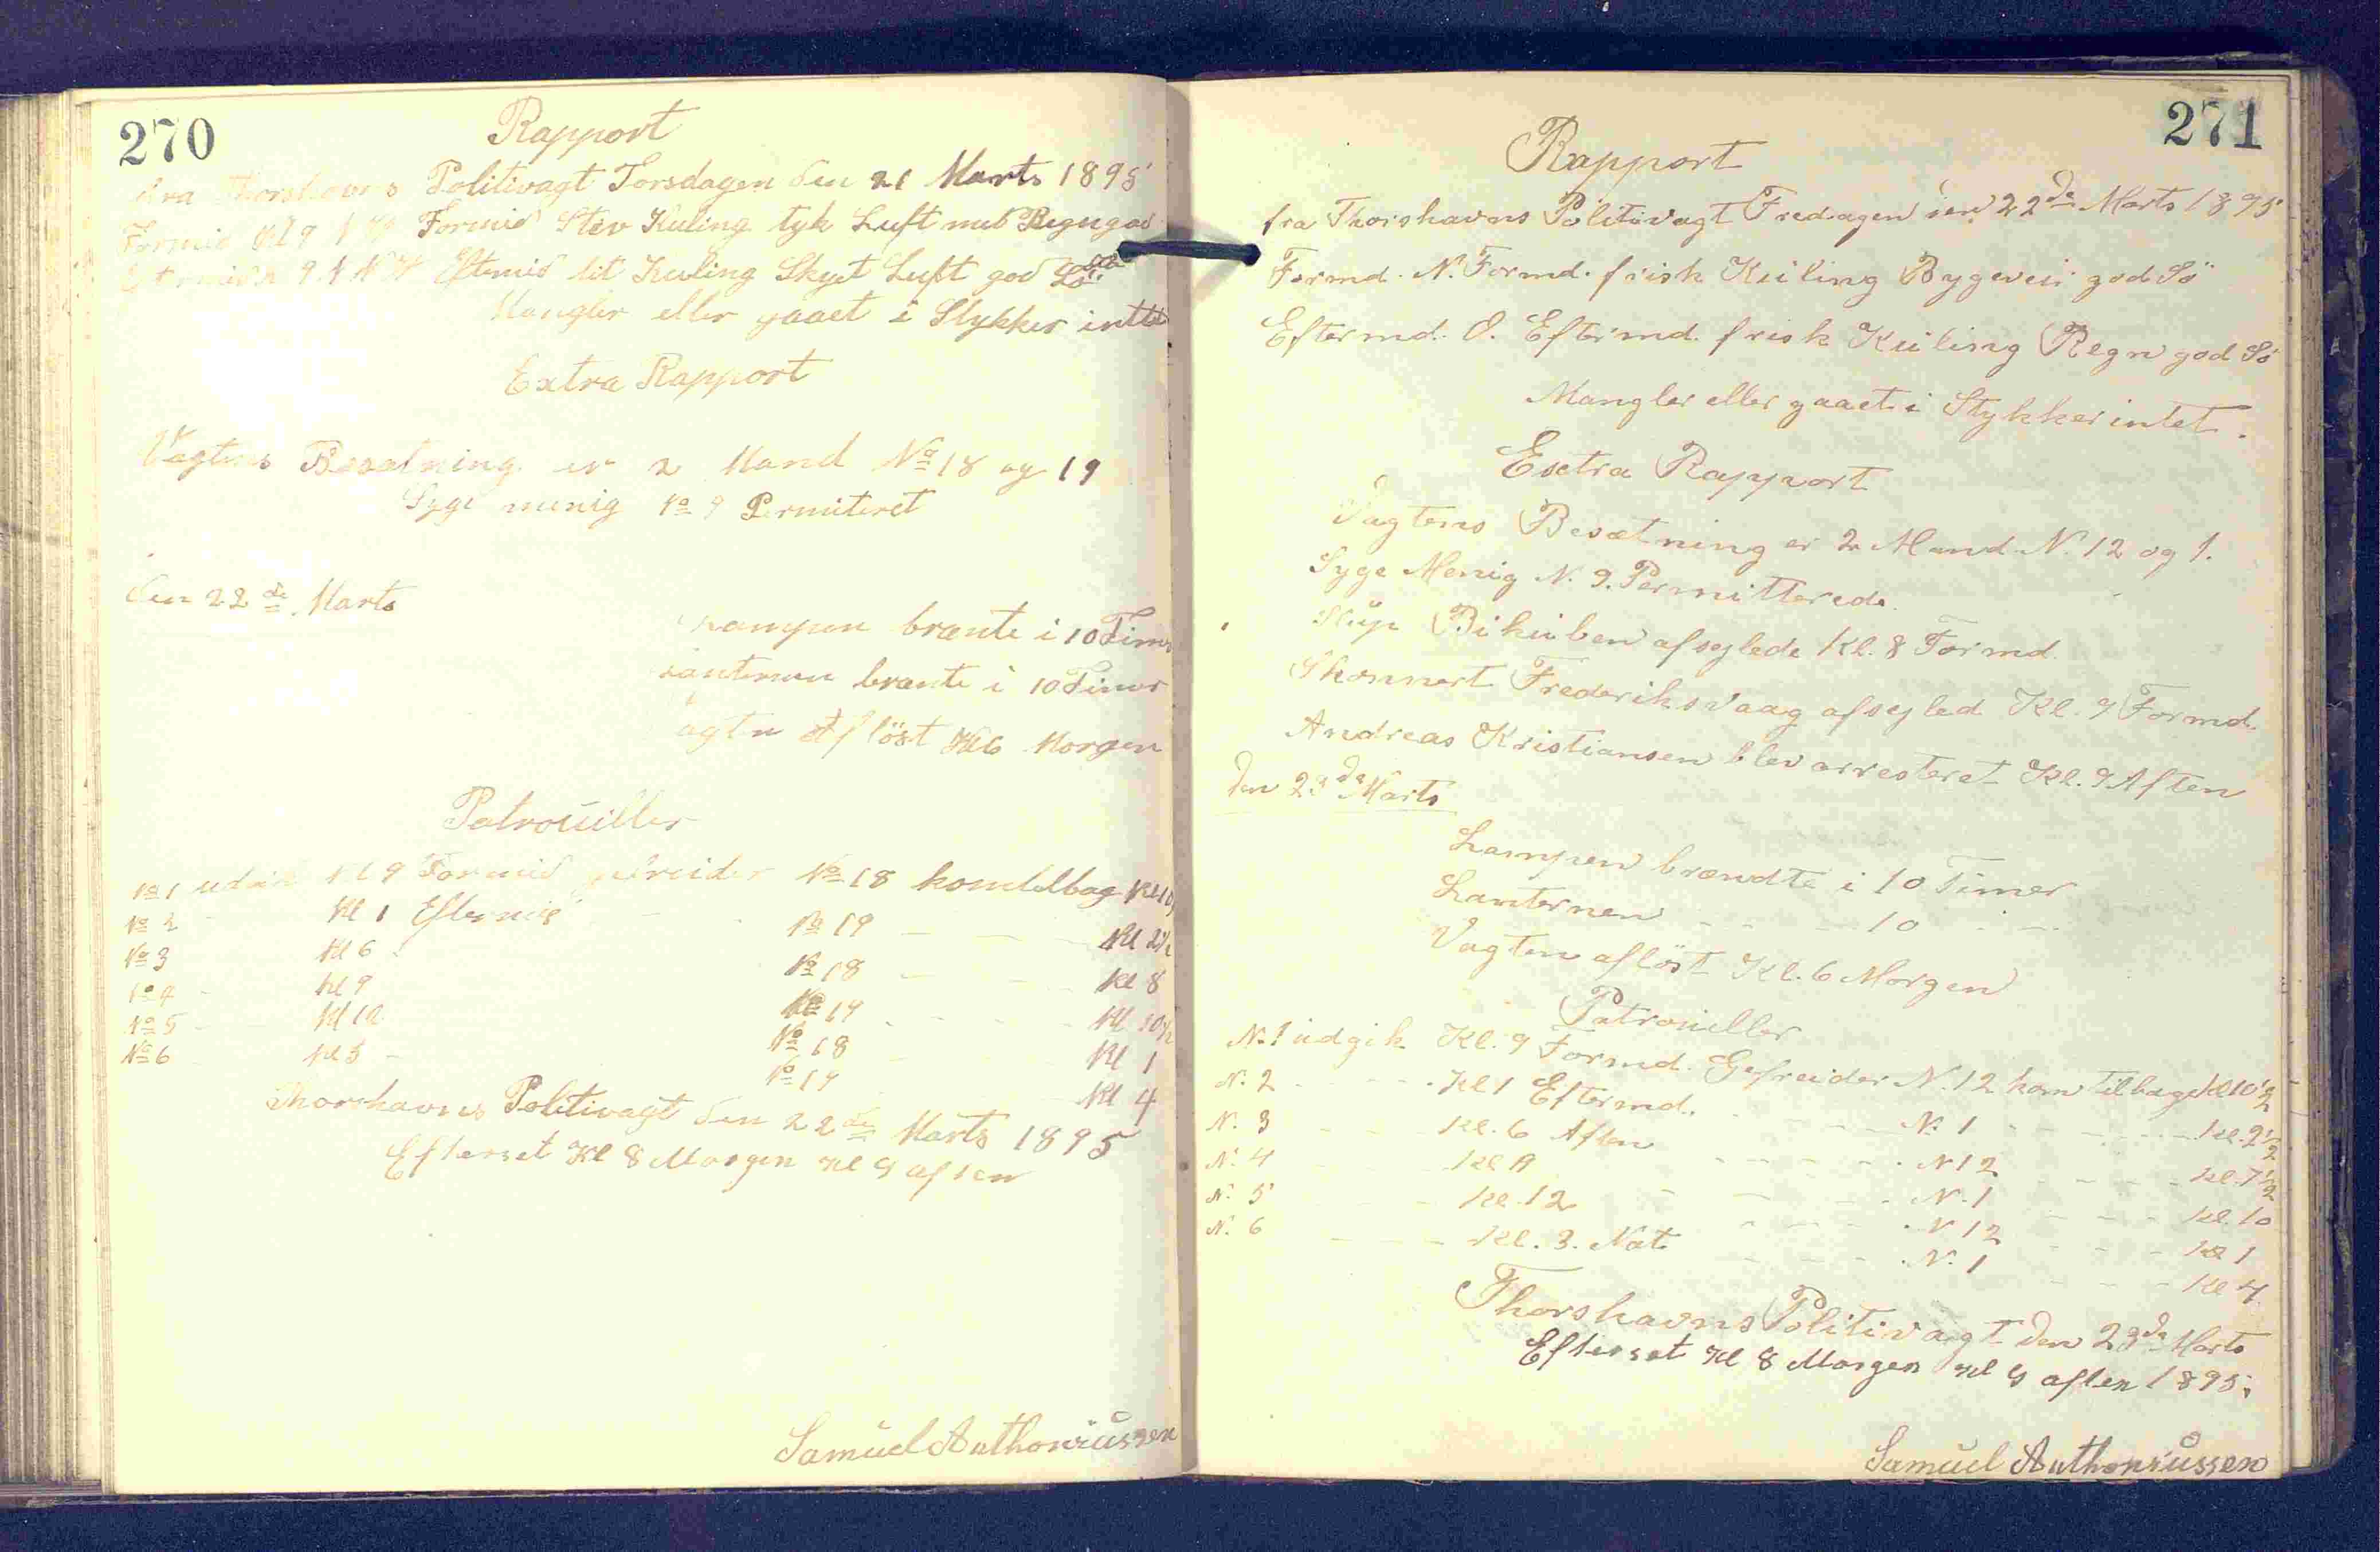 270
Rapport
fra Thorshavns Politivagt Torsdagen den 21 Marts 1895
Formid Kl 9 Formid Stiv Kuling tyk Luft med Regn god
Eftermid Kl 9 N N W Eftmid lit Kuling Skyet Luft god Sø
Mangler eller gaaet i Stykker inttet
Extra Rapport
Vagtens Besætning er 2 Mand No 18 og 19
Syge menig No 9 Permiteret
den 22de Marts
Lampen brænte i 10 Timer
Lanternen brænte i 10 Timer
Vagtn Afløst Kl 6 Morgen
Patrouiller
No 1 udgik Kl 9 Formid gefreider No 18 kom telbag Kl 10½
No 2 - Kl 1 Eftermid - No 19 - - - Kl 2½
No 3 Kl 6 No 18 - - Kl 8
No 4 - Kl 9 No 19 - - - Kl 10½
No 5 - Kl 12 No 18 - Kl 1
No 6 - Kl 3 - No 19 - Kl 4
Thorshavns Politivagt den 22de Marts 1895
Efterset Kl 8 Morgen Kl 9 aften
Samuel Anthoniussen
271
Rapport
fra Thorshavns Politivagt Fredagen den 22de Marts 1895
Formd. N. Formd. frisk Kuling Bygeveir god Sö
Eftermd. O. Eftermd. frisk Kuling Regn god Sö
Mangler eller gaaet i Stykker intet.
Esctra Rapport
Vagtens Besætning er 2 Mand N. 12 og 1.
Syge Menig N. 9. Permitterede.
Slup Bikuben afsejlede Kl. 8 Formd.
Skonnert Frederiksvaag afsejled Kl. 9 Formd.
Andreas Kristiansen blev arresteret Kl. 9 Aften
den 23de Marts
Lampen brændte i 10 Timer
Lanternen - - - 10 - -
Vagten aflöst Kl. 6 Morgen
Patrouiller
N. 1 udgik Kl. 9 Formd. Gefreider N. 12 kom tilbage Kl 10½
N. 2 - - - Kl 1 Eftermd. - - - N. 1 - - - Kl. 2½
N. 3 - - - Kl. 6 Aften - - - N 12 - - - Kl. 7½
N. 4 - - Kl 9 - - - N. 1 - - - Kl. 10
N. 5 - - Kl. 12 - - - N 12 - - - Kl 1
N. 6 - - - Kl. 3. Nat - - - N. 1 - - - Kl 4
Thorshavns Politivagt den 23de Marts
Efterset Kl 8 Morgen Kl 9 aften 1895.
Samuel Anthoniussen